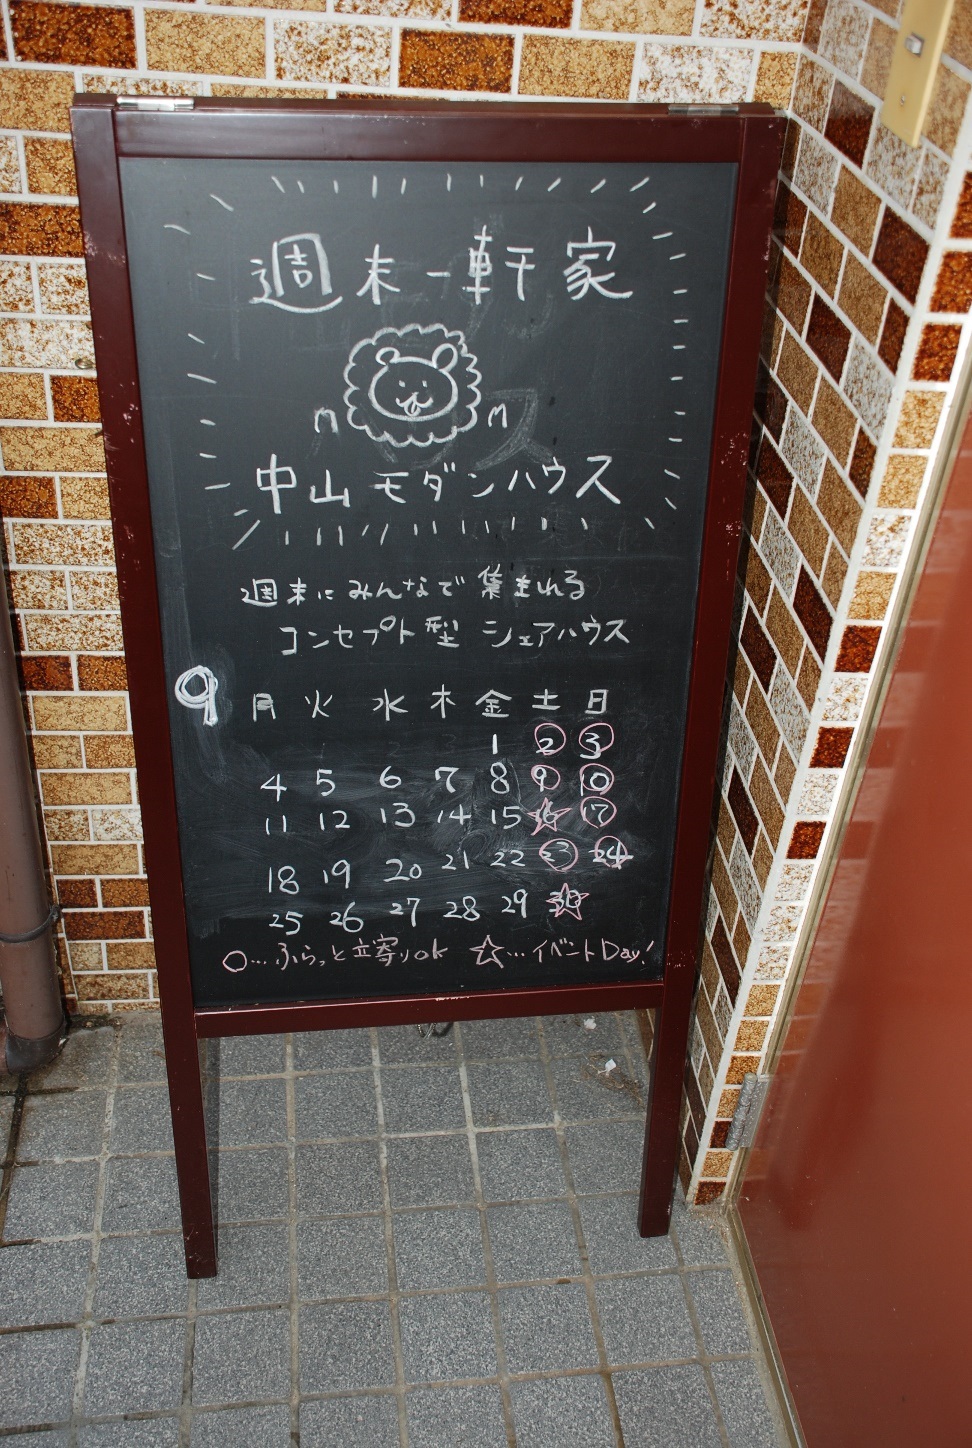 週末一軒家
中山モダンハウス
週末にみんなで集まれる
コンセプト型シェアハウス
9 月 火 水 木 金 土 日
1 2 3
4 5 6 7 8 9 10
11 12 13 14 15 16 17
18 19 20 21 22 23 24
25 26 27 28 29 30
○…ふらっと立寄りok ☆…イベントDay!